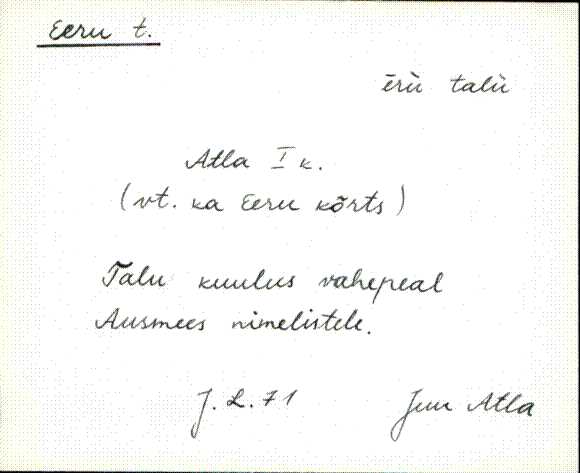 Eeru t.
ērù talù
Atla I k.
(vt. ka Eeru kõrts)
Talu kuulus vahepeal
Ausmees nimelistele.
J. L. 71 Juu Atla